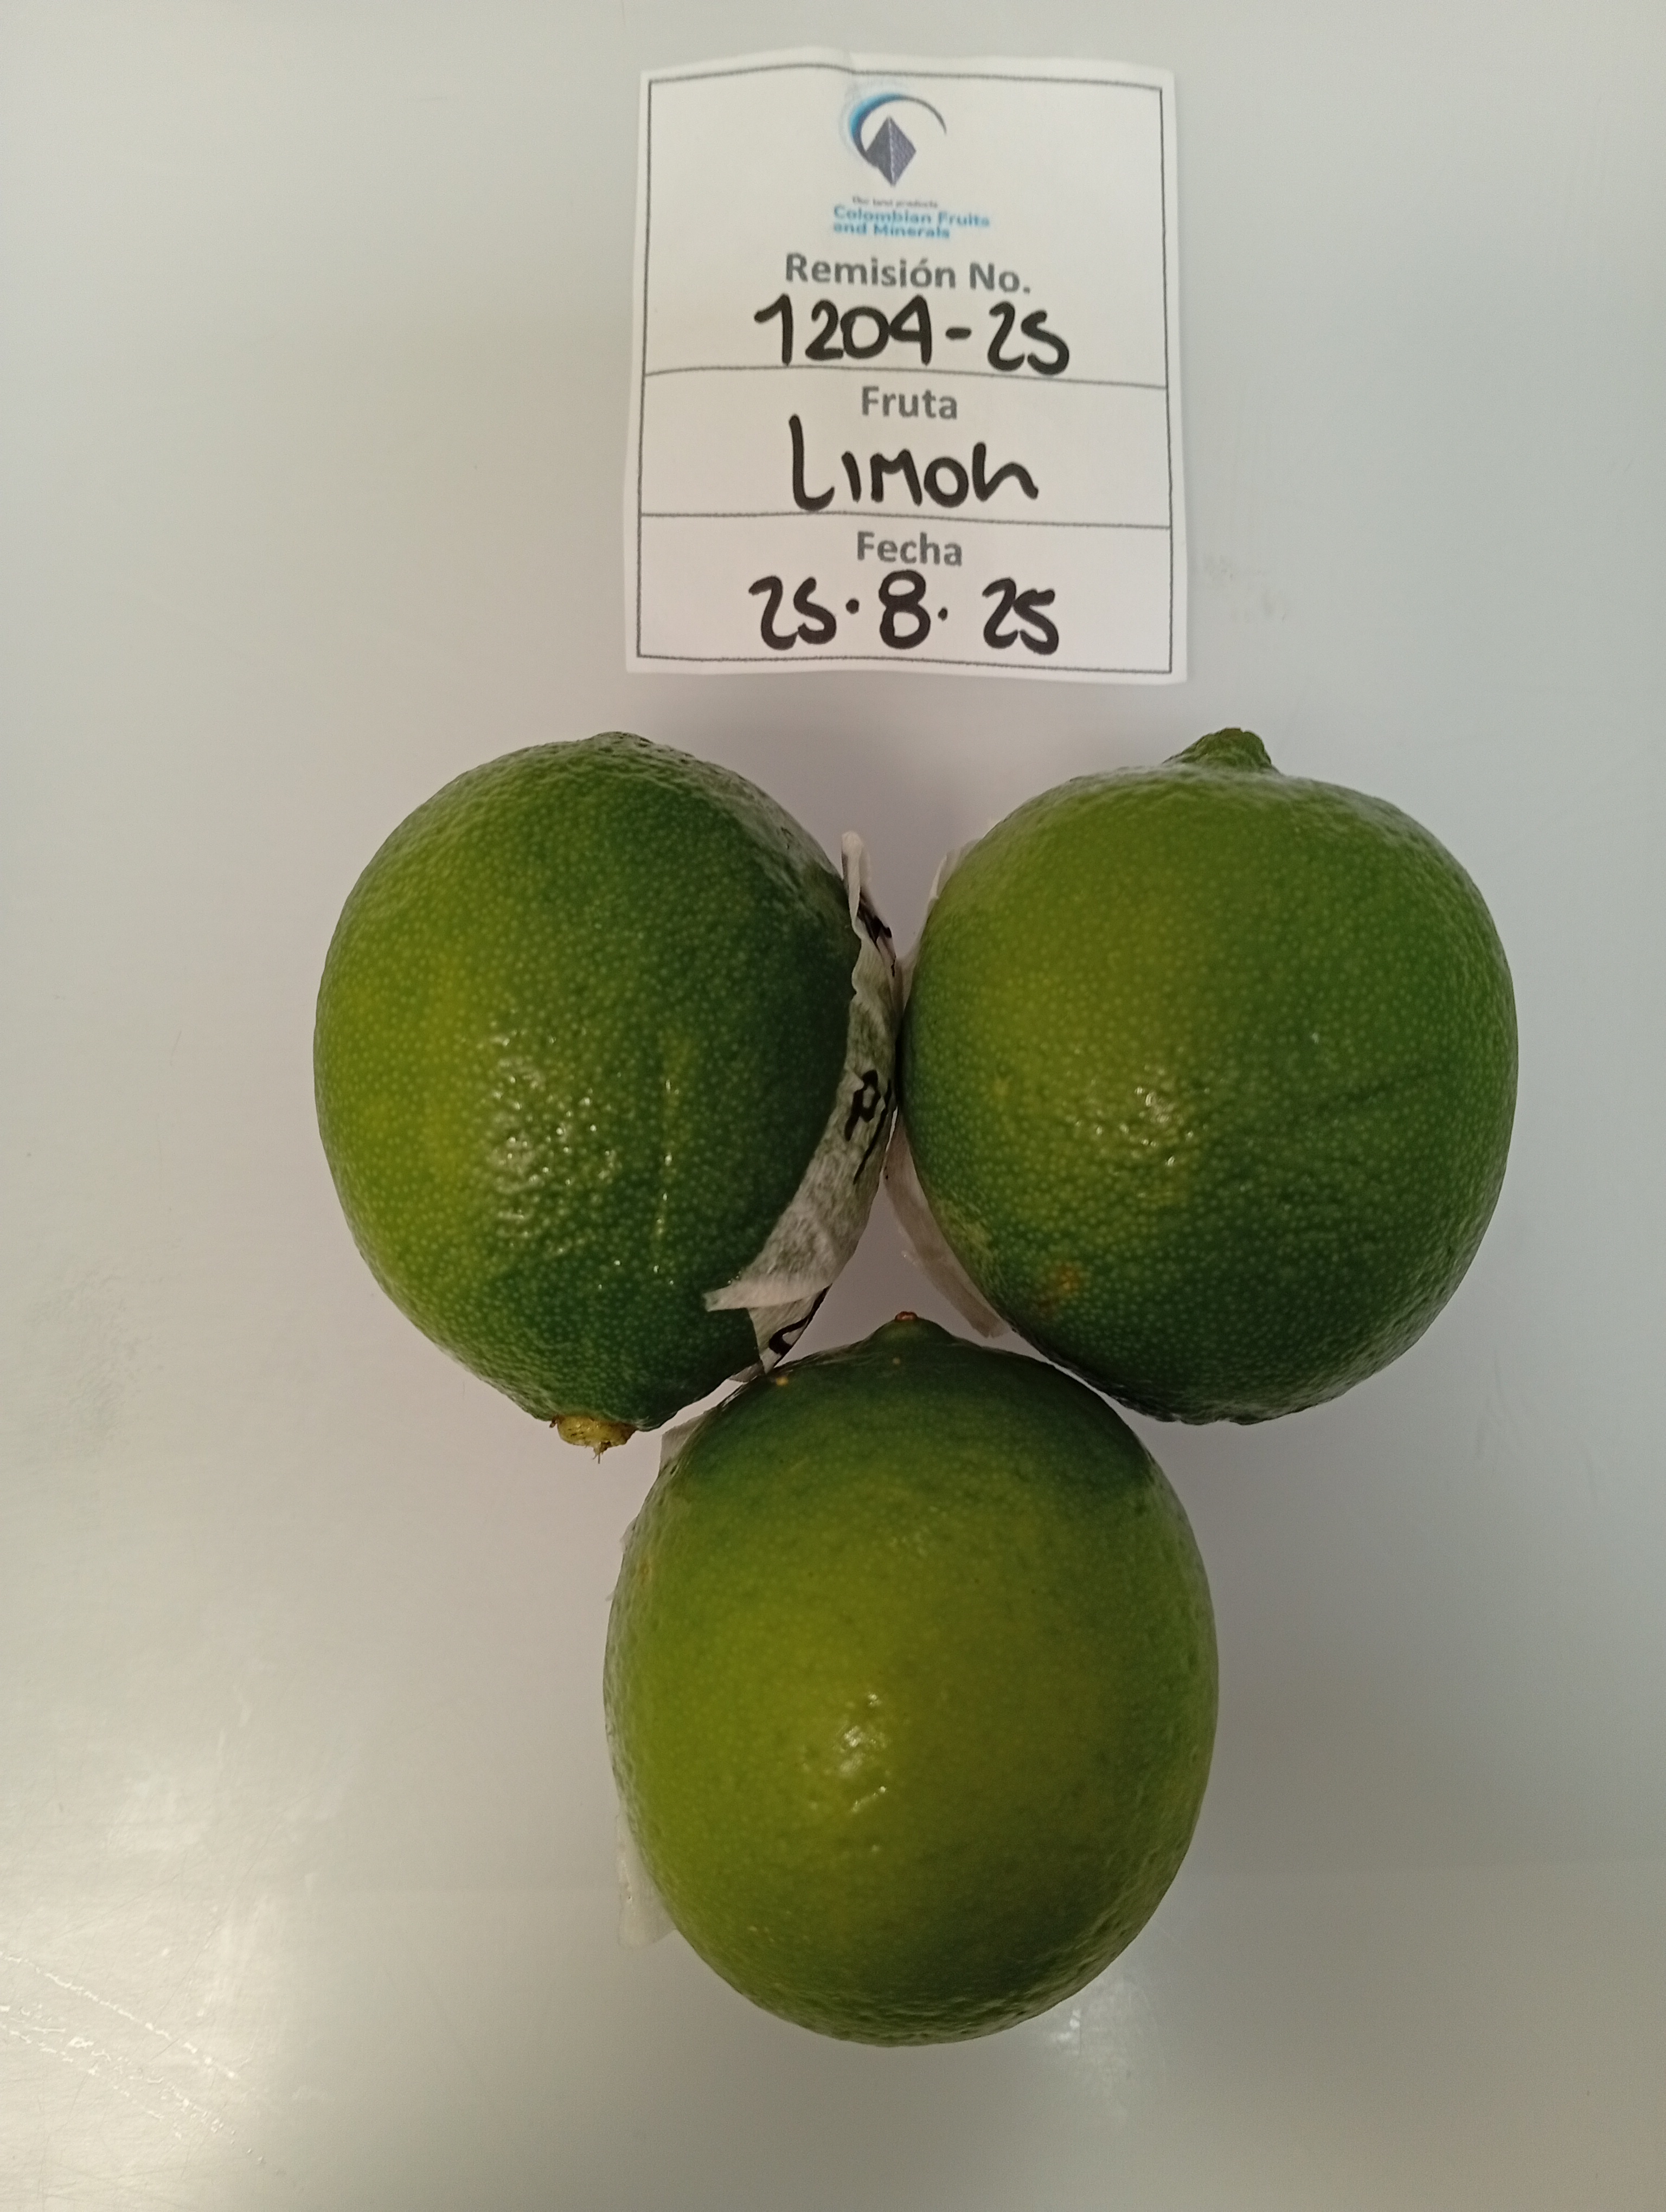 Our land products
Colombian Fruits
and Minerals
Remisión No.
1204-25
Fruta
Limon
Fecha
25.8.25